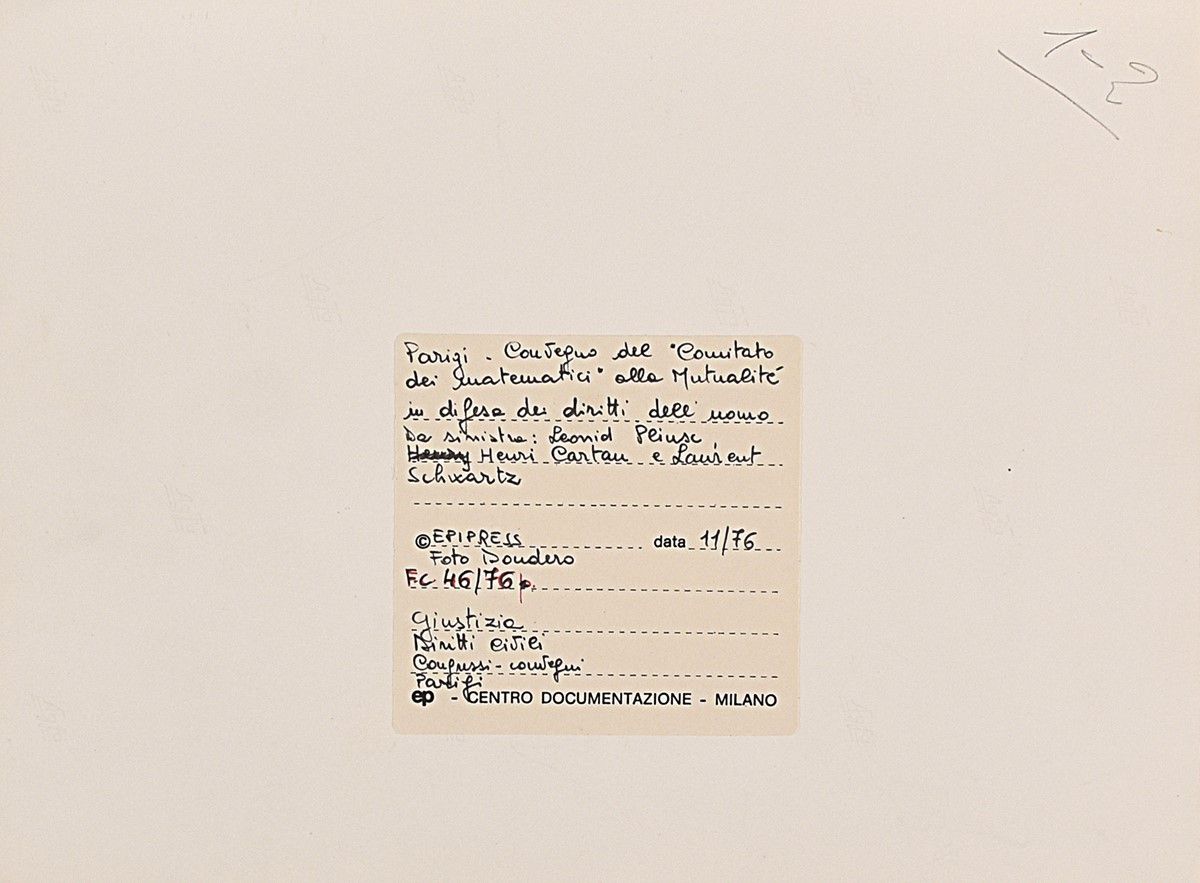 1-2
Parigi - Convegno del "Comitato
dei matematici" alla Mutualité
in difesa dei diritti dell'uomo
Da sinistra: Leonid Pliusc,
Henry Henri Cartan e Laurent
Schwartz
© EPIPRESS data 11/76
Foto Dondero
FC 46/76 p.
Giustizia
Diritti civili
Congressi - convegni
Parigi
ep - CENTRO DOCUMENTAZIONE - MILANO